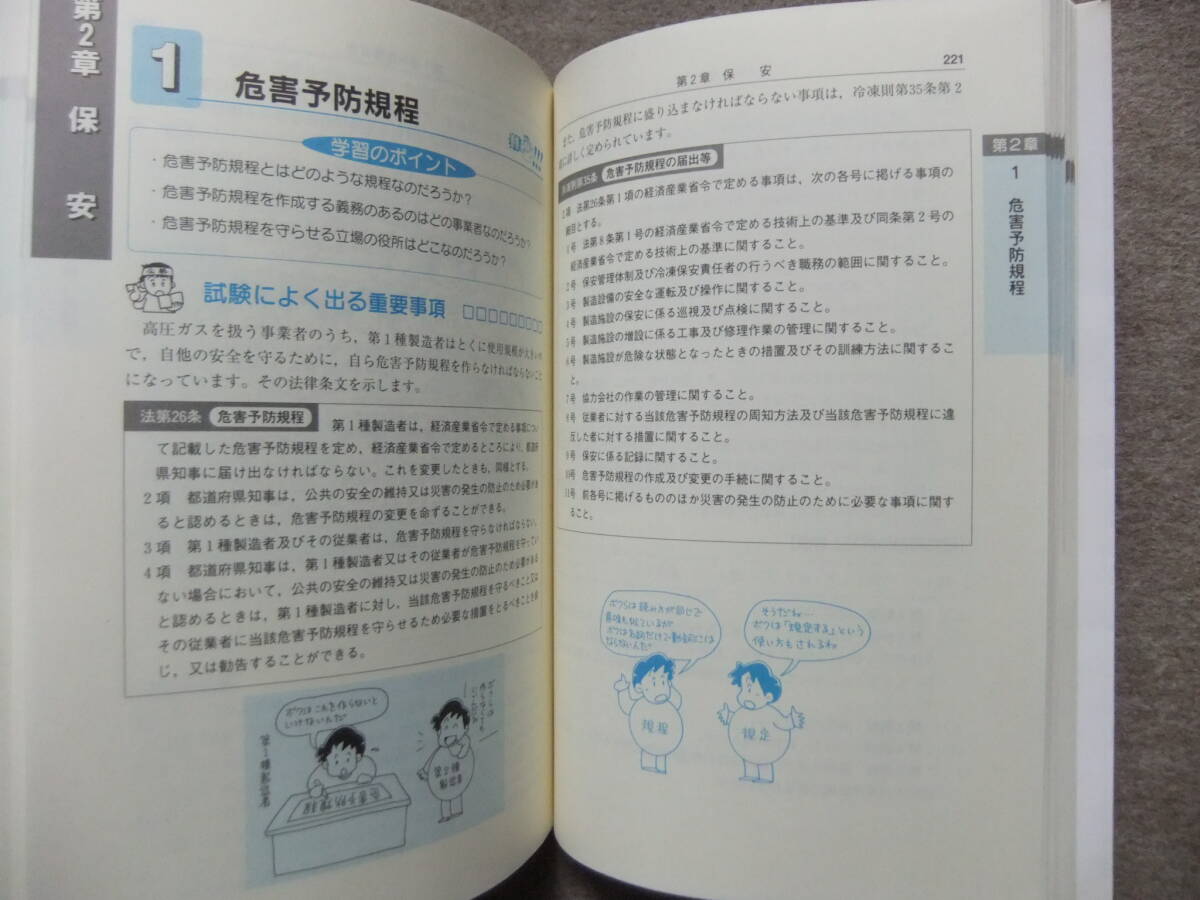 第2章 保安
1
危害予防規程
学習のポイント
・危害予防規程とはどのような規程なのだろうか?
・危害予防規程を作成する義務のあるのはどの事業者なのだろうか?
・危害予防規程を守らせる立場の役所はどこなのだろうか?
試験によく出る重要事項 □□□□□□□□□
高圧ガスを扱う事業者のうち,第1種製造者はとくに使用規模が大きいの
で,自他の安全を守るために,自ら危害予防規程を作らなければならないこと
になっています。その法律条文を示します。
法第26条 危害予防規程 第1種製造者は,経済産業省令で定める事項につい
て記載した危害予防規程を定め,経済産業省令で定めるところにより,都道府
県知事に届け出なければならない。これを変更したときも,同様とする。
2項 都道府県知事は,公共の安全の維持又は災害の発生の防止のため必要があ
ると認めるときは,危害予防規程の変更を命ずることができる。
3項 第1種製造者及びその従業者は,危害予防規程を守らなければならない。
4項 都道府県知事は,第1種製造者又はその従業者が危害予防規程を守ってい
ない場合において,公共の安全の維持又は災害の発生の防止のため必要がある
と認めるときは,第1種製造者に対し,当該危害予防規程を守るべきこと又は
その従業者に当該危害予防規程を守らせるため必要な措置をとるべきことを命
じ,又は勧告することができる。
ボクはこれを作らないと
いけないんだ
危害予防規程
第1種製造者
第2章 保 安
221
また,危害予防規程に盛り込まなければならない事項は,冷凍則第35条第2
項に詳しく定められています。
冷凍則第35条 危害予防規程の届出等
2項 法第26条第1項の経済産業省令で定める事項は,次の各号に掲げる事項の
細目とする。
1号 法第8条第1号の経済産業省令で定める技術上の基準及び同条第2号の
経済産業省令で定める技術上の基準に関すること。
2号 保安管理体制及び冷凍保安責任者の行うべき職務の範囲に関すること。
3号 製造設備の安全な運転及び操作に関すること。
4号 製造施設の保安に係る巡視及び点検に関すること。
5号 製造施設の増設に係る工事及び修理作業の管理に関すること。
6号 製造施設が危険な状態となったときの措置及びその訓練方法に関するこ
と。
7号 協力会社の作業の管理に関すること。
8号 従業者に対する当該危害予防規程の周知方法及び当該危害予防規程に違
反した者に対する措置に関すること。
9号 保安に係る記録に関すること。
10号 危害予防規程の作成及び変更の手続に関すること。
11号 前各号に掲げるもののほか災害の発生の防止のために必要な事項に関す
ること。
ボクらは読み方が同じで
意味も似ているが
ボクは名詞だけで動詞には
ならないんだ
そうだね…
ボクは「規定する」という
使い方もされるね
規程
規定
第2章
1 危害予防規程